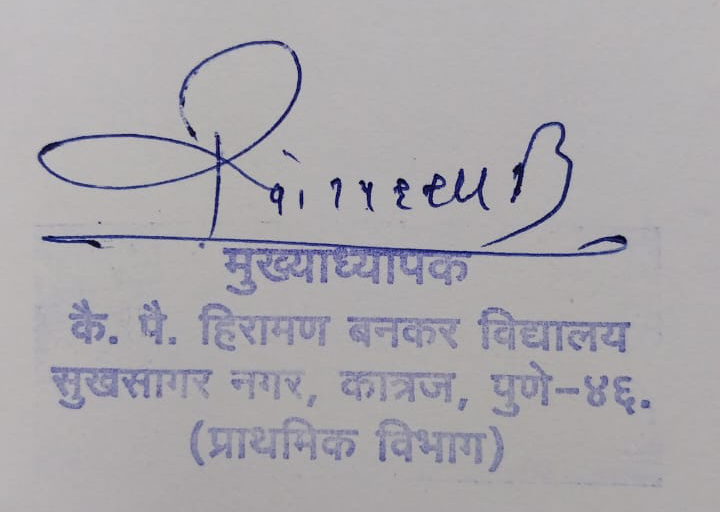 मुख्याध्यापक
कै. पै. हिरामण बनकर विद्यालय
सुखसागर नगर, कात्रज, पुणे-४६.
(प्राथमिक विभाग)